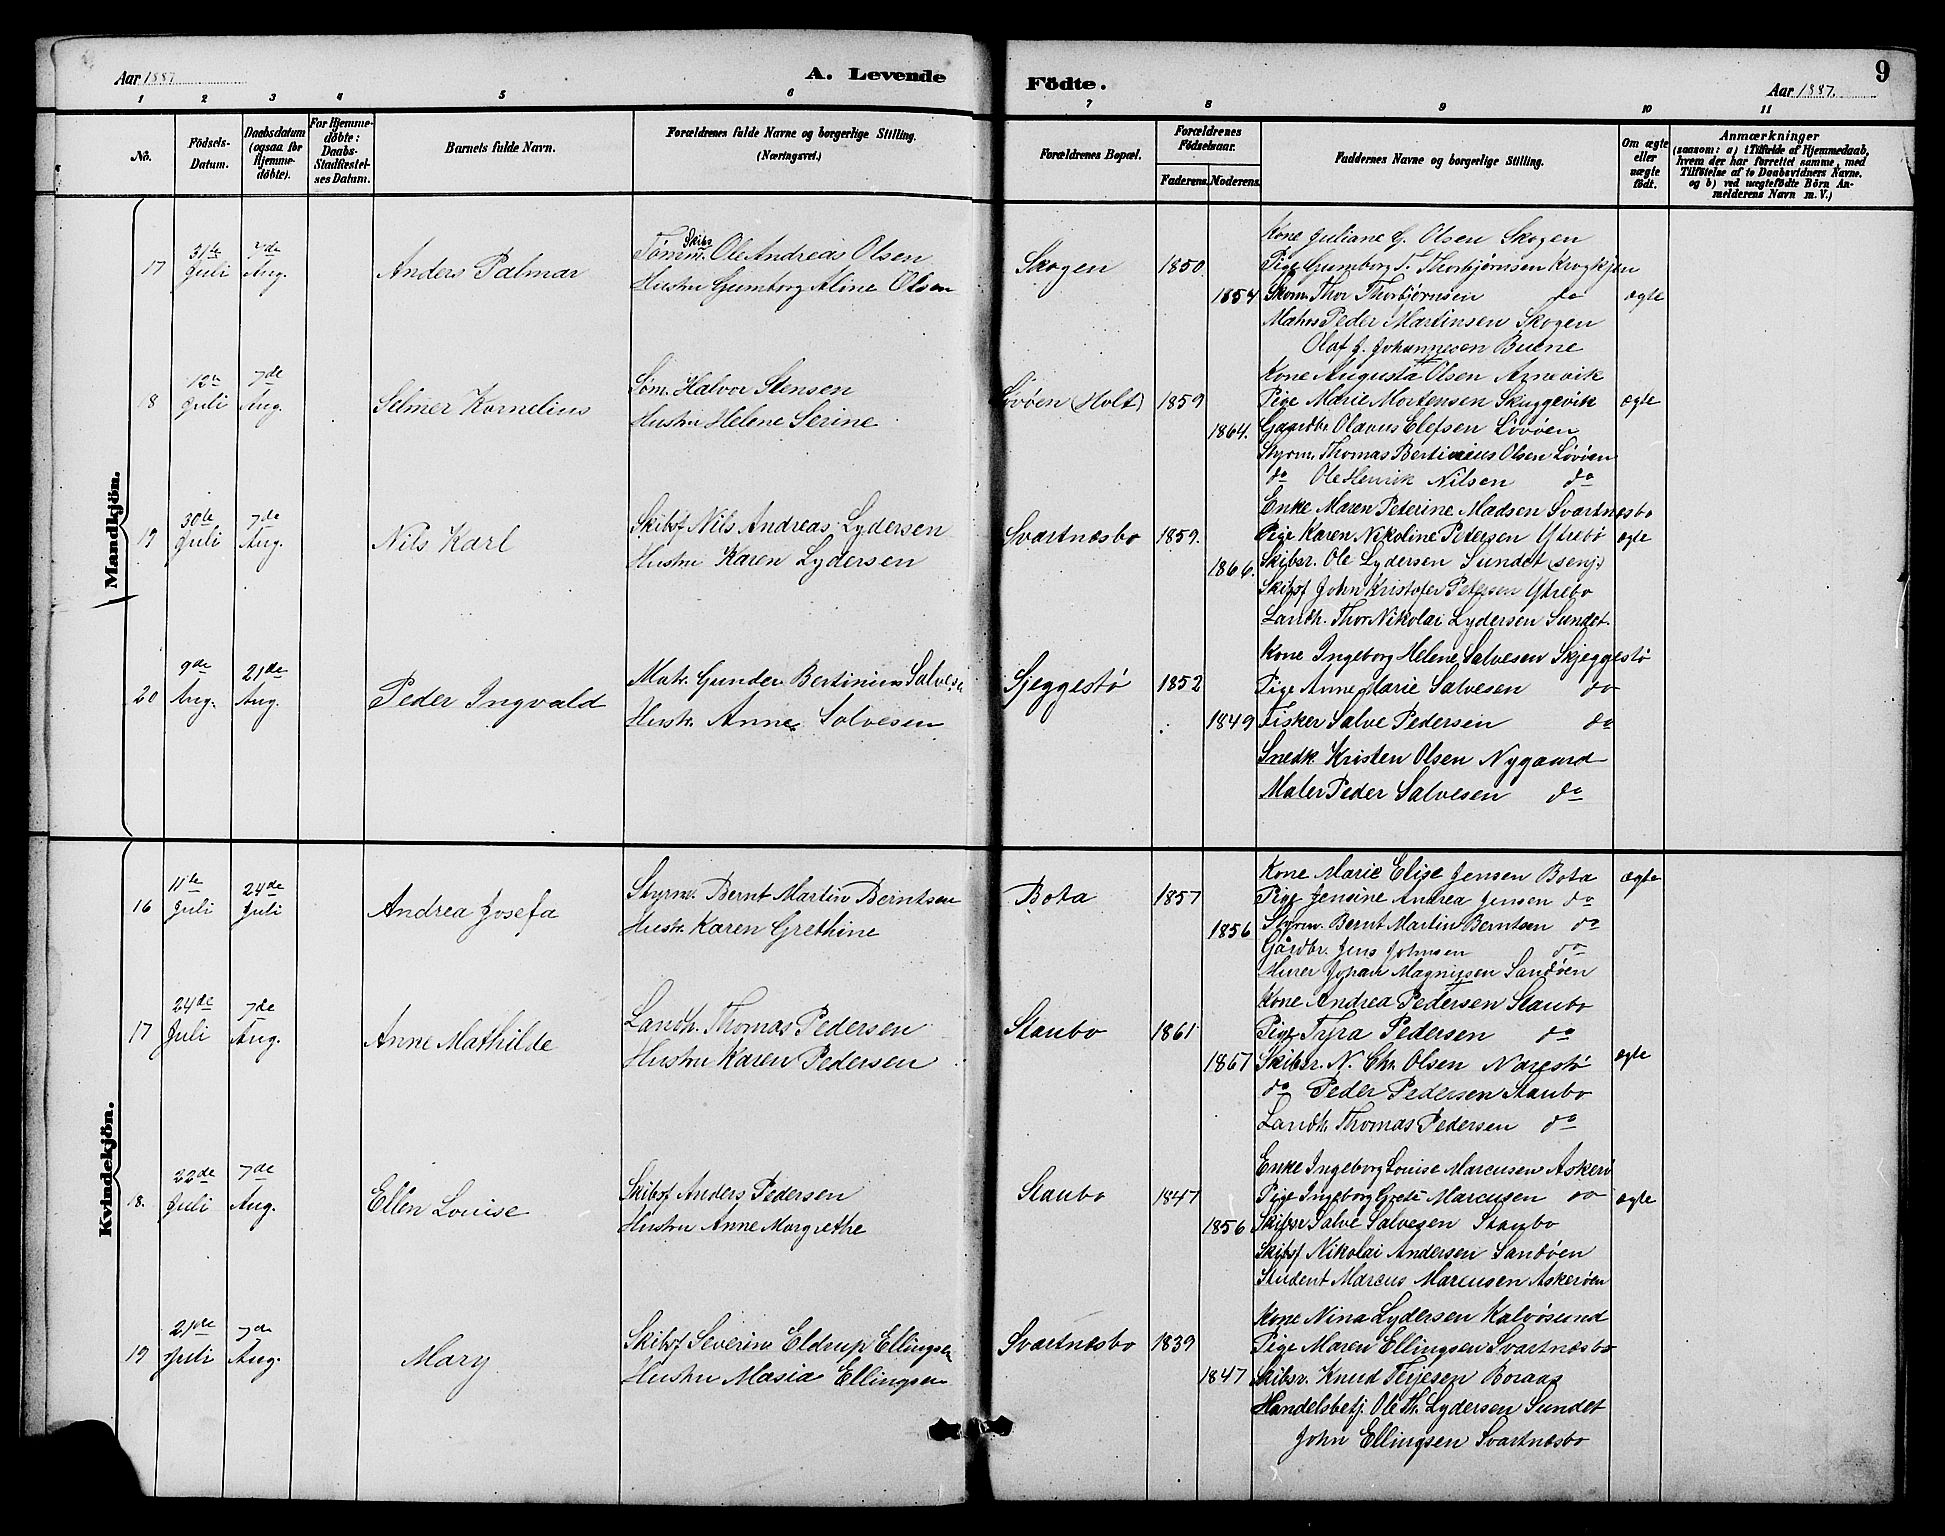 Aar 1887 A. Levende Födte. Aar 1887. 9
1 2 3 4 5 6 7 8 9 10 11
No.
Födsels-Datum.
Daabsdatum (ogsaa for Hjemmedøbte).
For Hjemmedøbte: Daabs-Stadfæstelses Datum.
Barnets fulde Navn.
Forældrenes fulde Navne og borgerlige Stilling. (Næringsvei.)
Forældrenes Bopæl.
Forældrenes Födselsaar.
Faderens. Moderens.
Faddernes Navne og borgerlige Stilling.
Om ægte eller uægte födt.
Anmærkninger
(saasom: a) i Tilfælde af Hjemmedaab, hvem der har forrettet samme, med Tilföielse af to Daabsvidners Navne. og b) ved uægtefödte Börn Anmelderens Navn m. V.)
Mandkjön.
17
31te Juli
7de Aug.
Anders Palmar
Skibs
Tømm. Ole Andreas Olsen
Hustru Gumborg Aline Olsen
Skogen
1850.
1854
Kone Juliane G. Olsen Skogen
Pige Gumborg T. Thorbjørnsen Krogkjen
Skom. Thor Thorbjørnsen do
Matros Peder Martinsen Skogen
Olaf J. Johannesen Buene
ægte
18
12te Juli
7de Aug.
Selmer Kornelius
Søm. Halvor Stensen
Hustru Helene Serine
Løvøen (Holt)
1859
1864.
Kone Augusta Olsen Arnevik
Pige Marie Mortensen Skuggevik
Gaardbr. Olavus Elefsen Løvøen
Styrm. Thomas Bertinius Olsen Løvøen
do Ole Henrik Nilsen do
ægte
19
30te Juli
7de Aug.
Nils Karl
Skibsf Nils Andreas Lydersen
Hustru Karen Lydersen
Svartnæsbo
1859.
1866.
Enke Maren Peterine Madsen Svartnæsbo
Pige Karen Nikoline Petersen Ytrebø
Skibsr. Ole Lydersen Sundet (senj.)
Skibsf John Kristofer Petersen Ytrebo
Landh. Thor Nikolai Lydersen Sundet.
ægte
20
9de Aug.
21de Aug.
Peder Ingvald
Matr. Gunder Bertinius Salvese
Hustr. Anne Salvesen
Sjeggestø
1852
1849
Kone Ingeborg Helene Salvesen Skjeggestø
Pige Anne Marie Salvesen do
Fisker Salve Pedersen do
Snedk. Kristen Olsen Nygaard
Maler Peder Salvesen do
Kvindekjön.
16
11te Juli
24de Juli
Andrea Josefa
Styrm. Bernt Martin Berntsen
Hustr. Karen Grethine
Bota
1857
1856
Kone Marie Elise Jensen Bota
Pige Jensine Andrea Jensen do
Styrm. Bernt Martin Berntsen do
Gårdbr. Jens Johnsen do
Murer Johan Magnussen Sandøen
ægte
17
24de Juli
7de Aug.
Anne Mathilde
Landh. Thomas Pedersen
Hustru Karen Pedersen
Staubo
1861
1867
Kone Andrea Pedersen Staubo
Pige Tyra Pedersen do
Skibsr. N. Chr. Olsen Narestø
do Peder Pedersen Staubo
Landh. Thomas Pedersen do
ægte
18.
22de Juli
7de Aug.
Ellen Louise
Skibsf Anders Pedersen
Hustru Anne Margrethe
Staubo
1847
1856
Enke Ingeborg Louise Marcusen Askerø
Pige Ingeborg Grete Marcusen do
Skibsr Salve Salvesen Staubo
Skibsf Nikolai Andersen Sandøen
Student Marcus Marcusen Askerøen
ægte
19
21de Juli
7de Aug.
Mary
Skibsf Severin Eldrup Ellingsen
Hustru Masia Ellingsen
Svartnæsbo
1839
1847
Kone Nina Lydersen Kalvøsund
Pige Maren Ellingsen Svartnæsbo
Skibsr. Knud Terjesen Boraas
Handelsbetj. Ole Th. Lydersen Sundet
John Ellingsen Svartnæsbo